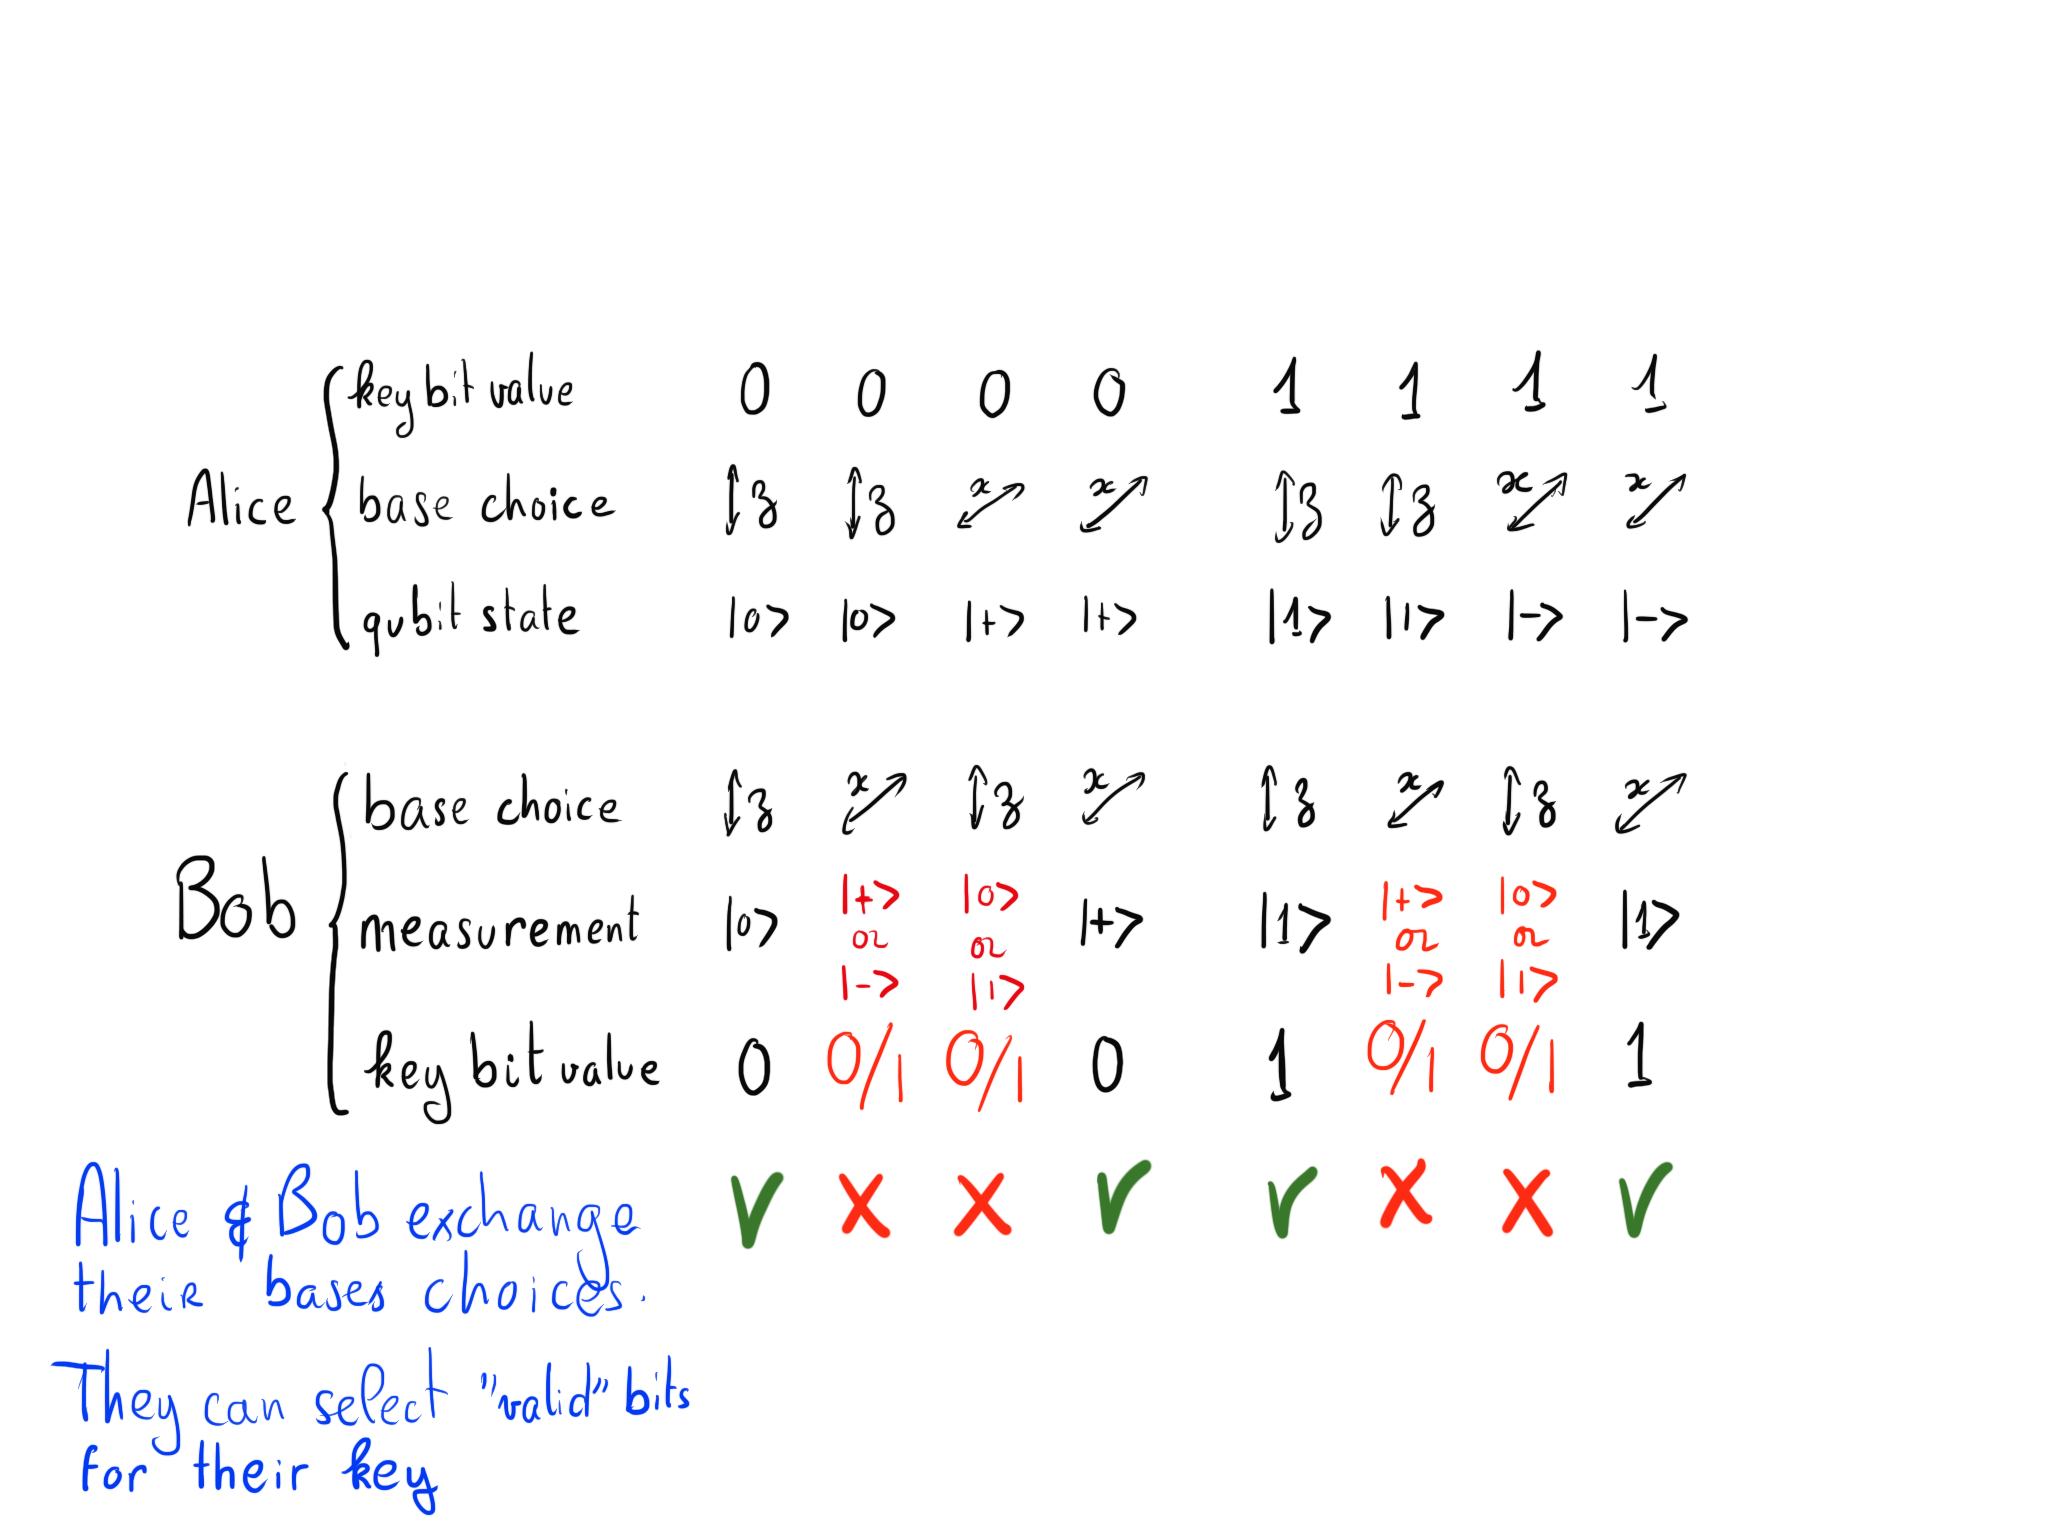 key bit value 0 0 0 0 1 1 1 1
Alice base choice z z x x z z x x
qubit state |0> |0> |+> |+> |1> |1> |-> |->
base choice z x z x z x z x
|+> |0> |+> |0>
Bob measurement |0> or or |+> |1> or or |1>
|-> |1> |-> |1>
key bit value 0 0/1 0/1 0 1 0/1 0/1 1
Alice & Bob exchange V X X V V X X V
their bases choices.
They can select "valid" bits
for their key